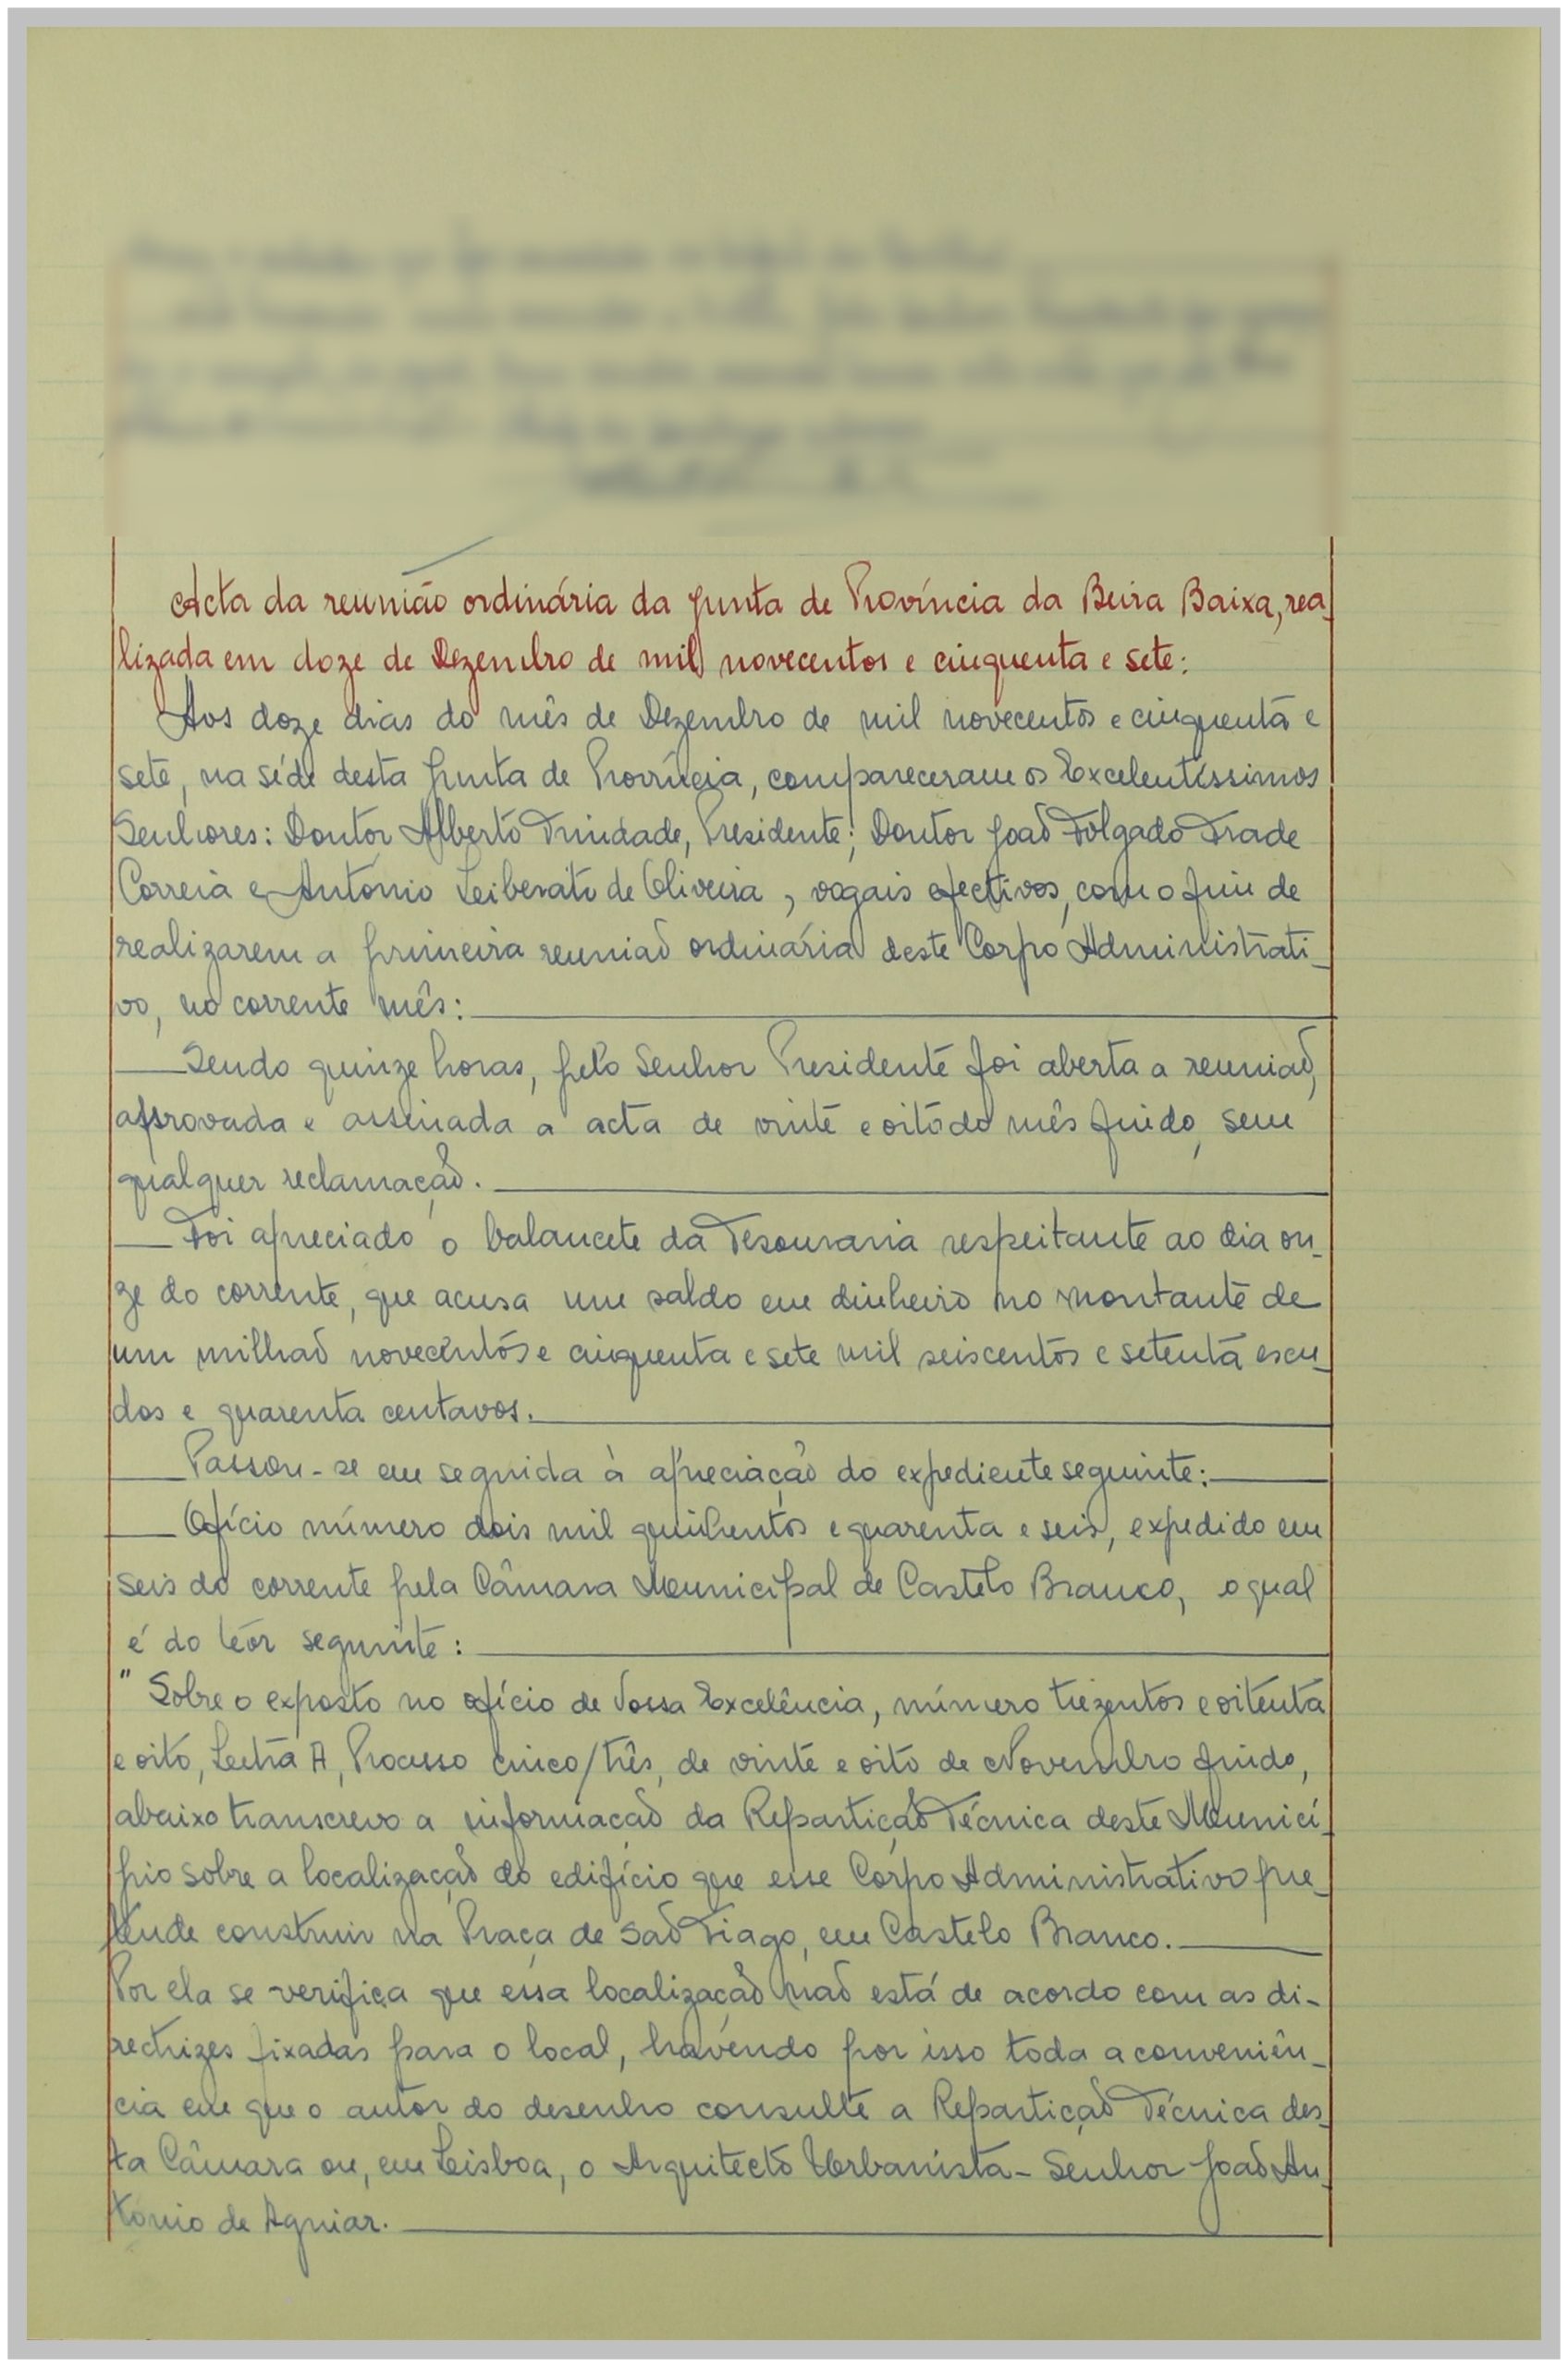 Acta da reunião ordinária da Junta de Província da Beira Baixa, rea-
lizada em doze de Dezembro de mil novecentos e cinquenta e sete:
Aos doze dias do mês de Dezembro de mil novecentos e cinquenta e
sete, na séde desta Junta de Província, compareceram os Excelentíssimos
Senhores: Doutor Alberto Trindade, Presidente; Doutor João Folgado Frade
Correia e António Leiberato de Oliveira, vogais efectivos, com o fim de
realizarem a primeira reunião ordinária deste Corpo Administrati-
vo, no corrente mês:
Sendo quinze horas, pelo Senhor Presidente foi aberta a reunião,
aprovada e assinada a acta de vinte e oito do mês findo, sem
qualquer reclamação.
Foi apreciado o balancete da Tesouraria respeitante ao dia on-
ze do corrente, que acusa um saldo em dinheiro no montante de
um milhão novecentos e cinquenta e sete mil seiscentos e setenta escu-
dos e quarenta centavos.
Passou-se em seguida à apreciação do expediente seguinte:
Ofício número dois mil quinhentos e quarenta e seis, expedido em
seis do corrente pela Câmara Municipal de Castelo Branco, o qual
é do teôr seguinte:
"Sobre o exposto no ofício de Vossa Excelência, número trezentos e oitenta
e oito, Lectra A, Processo cinco/três, de vinte e oito de Novembro findo,
abaixo transcrevo a informação da Repartição Técnica deste Municí-
pio sobre a localização do edifício que esse Corpo Administrativo pre-
tende construir na Praça de São Tiago, em Castelo Branco.
Por ela se verifica que essa localização não está de acordo com as di-
rectrizes fixadas para o local, havendo por isso toda a conveniên-
cia em que o autor do desenho consulte a Repartição Técnica des-
ta Câmara ou, em Leisboa, o Arquitecto Urbanista - Senhor João An-
tonio de Aguiar.